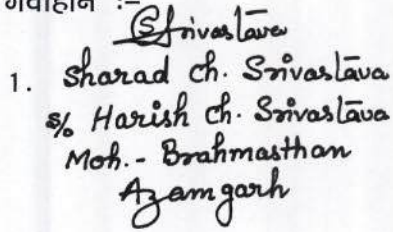 गवाहान :-
Srivastāva
1. Sharad Ch. Srivastāva
S/o Harish Ch. Srivastāva
Moh. - Brahmasthan
Azamgarh